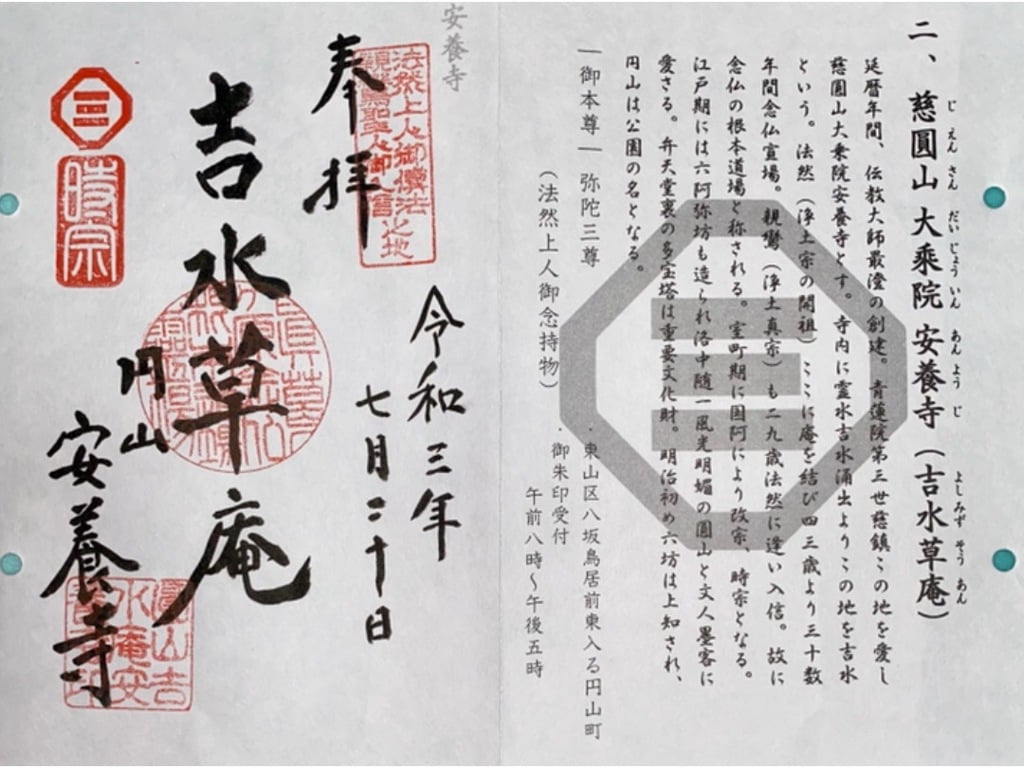 二、慈圓山 大乘院 安養寺（吉水草庵）
じ えん さん だい じょう いん あん よう じ よし みず そう あん
延暦年間、伝教大師最澄の創建。青蓮院第三世慈鎮この地を愛し
慈圓山大乘院安養寺とす。寺内に霊水吉水涌出よりこの地を吉水
という。法然（浄土宗の開祖）ここに庵を結び四三歳より三十数
年間念仏宣場。親鸞（浄土真宗）も二九歳法然に逢い入信。故に
念仏の根本道場と称される。室町期に国阿により改宗、時宗となる。
江戸期には六阿弥坊も造られ洛中随一風光明媚の圓山と文人墨客に
愛さる。弁天堂裏の多宝塔は重要文化財。明治初め六坊は上知され、
円山は公園の名となる。
―御本尊― 弥陀三尊
（法然上人御念持物）
・東山区八坂鳥居前東入る円山町
・御朱印受付
午前八時～午後五時
安養寺
奉拝
法然上人御懺法之地
親鸞聖人御入信
令和三年
七月二十日
吉水草庵
円山
安養寺
時宗
圓山吉
水庵安